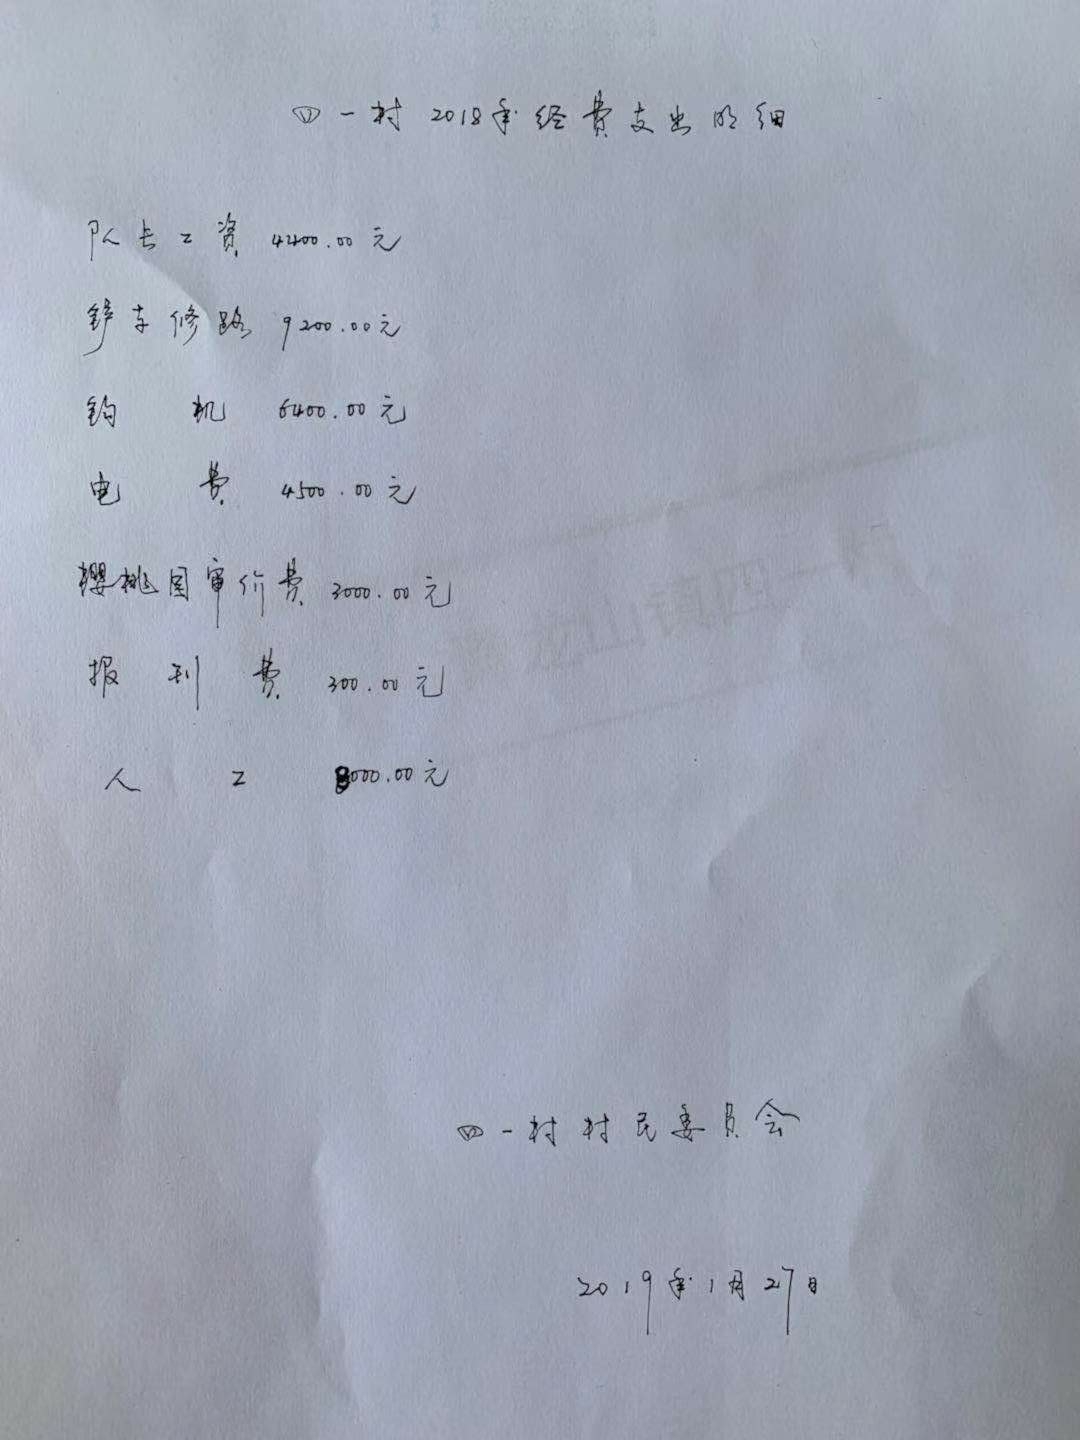 四一村2018年经费支出明细
队长工资 4400.00元
铲车修路 9200.00元
钩机 6400.00元
电费 4500.00元
樱桃园审价费 3000.00元
报刊费 300.00元
人工 8000.00元
四一村村民委员会
2019年1月27日